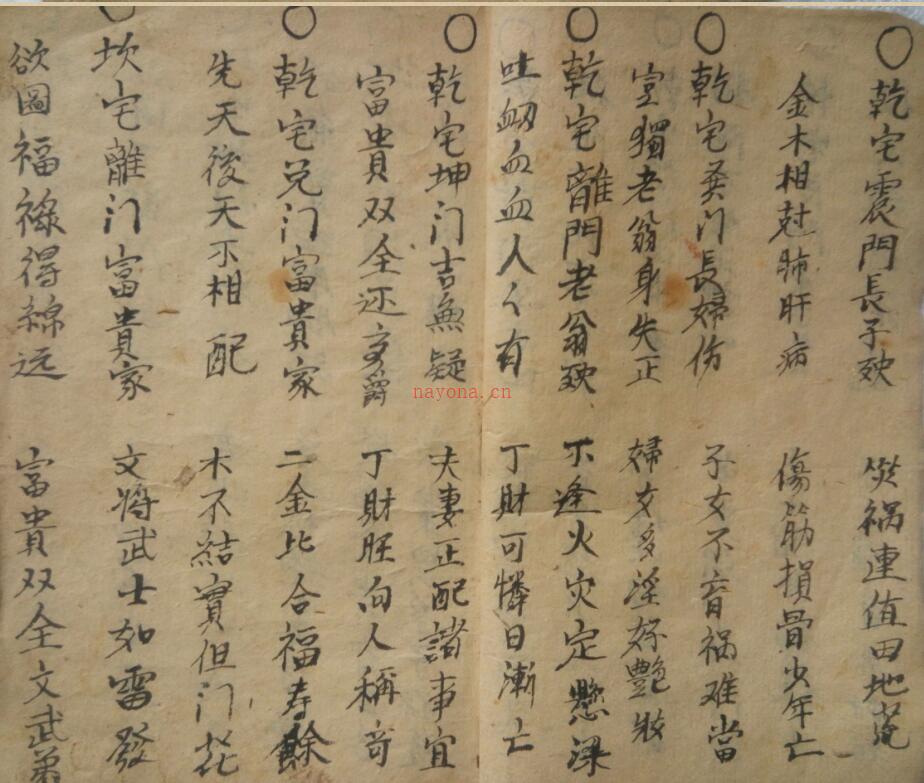 乾宅震門長子殃 災禍連值田地荒
金木相尅肺肝病 傷筋損骨少年亡
乾宅巽门長婦伤 子女不育禍难當
室獨老翁身失正 婦女多淫好艷妝
乾宅離門老翁殃 不逢火灾定懸梁
吐衂血血人々有 丁財可憐日漸亡
乾宅坤门吉無疑 夫妻正配諸事宜
富貴双全还多爵 丁財旺向人稱奇
乾宅兑门富貴家 二金比合福寿餘
先天後天不相配 木不結實但门花
坎宅離门富貴家 文将武士如雷發
欲圖福祿得綿远 富貴双全文武
nayona.cn